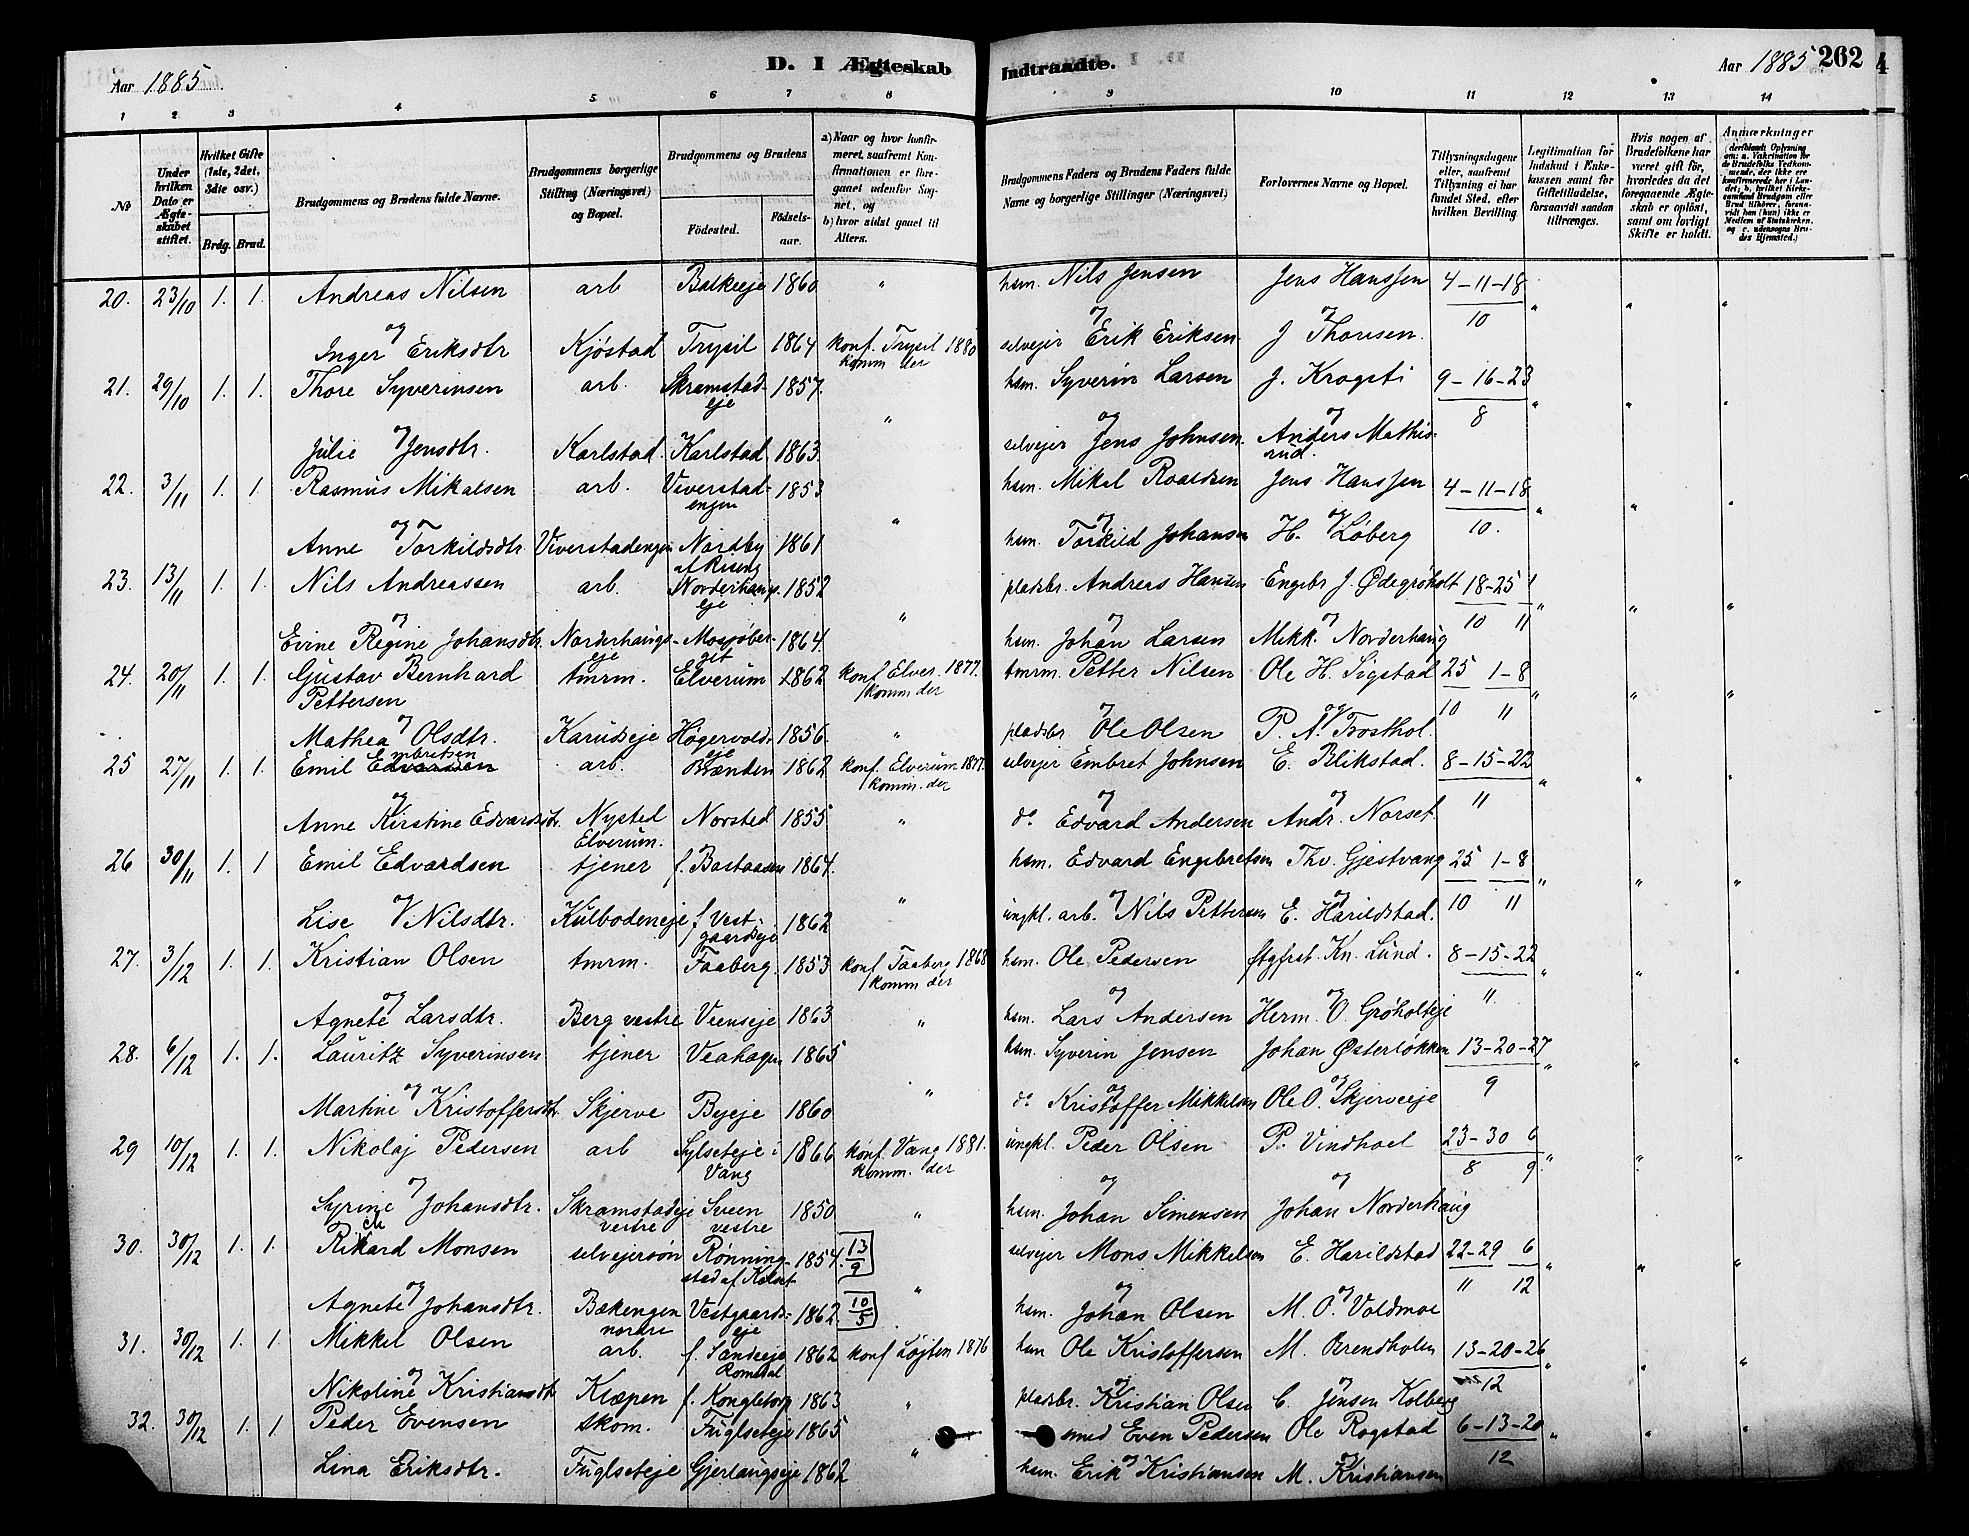 Aar 1885.
D. I Ægteskab
Indtraadte.
Aar 1885
262
1 2 3 4 5 6 7 8
9 10 11 12 13 14
No
Under hvilken Dato er Ægteskabet stiftet.
Hvilket Gifte (1ste, 2det, 3die osv.)
Brdg. Brud.
Brudgommens og Brudens fulde Navne.
Brudgommens borgerlige Stilling (Næringsvei) og Bopæl.
Brudgommens og Brudens
Födested.
Födselsaar.
a) Naar og hvor konfirmeret, saafremt Konfirmationen er foregaaet udenfor Sognet, og
b) hvor sidst gaaet til Alters.
Brudgommens Faders og Brudens Faders fulde Navne og borgerlige Stillinger (Næringsvei)
Forlovernes Navne og Bopæl.
Tillysningsdagene eller, saafremt Tillysning ei har fundet Sted, efter hvilken Bevilling.
Legitimation for Indskud i Enkekassen samt for Giftetilladelse, forsaavidt saadan tiltrænges.
Hvis nogen af Brudefolkene har været gift før, hvorledes da det foregaaende Ægteskab er opløst, samt om lovligt Skifte er holdt.
Anmærkninger
20. 23/10 1. 1. Andreas Nilsen arb Balkeeje 1860 " hsm. Nils Jensen Jens Hanssen 4-11-18 / 10
og Inger Eriksdtr Kjöstad Trysil 1864 konf. Trysil 1880 komm der selvejer og Erik Eriksen og J Thoresen.
21. 29/10 1. 1. Thore Syverinsen arb. Skramstadeje 1857. " hsm. Syverin Larsen J. Krogsti 9-16-23 / 8
og Julie Jensdtr. Karlstad. Karlstad 1863. selvejer og Jens Johnsen. og Anders Mathisrud.
22. 3/11 1. 1. Rasmus Mikalsen arb. Viverstadengen 1853 " hsm. Mikal Roaldsen Jens Hanssen 4-11-18 / 10.
og Anne Torkildsdtr Viverstadengen Nordby af Riseng 1861 hsm. og Torkild Johansen og H. Løberg
23. 13/11 1. 1. Nils Andreassen arb. Norderhaugeje 1852 " pladsbr. Andreas Hansen Engebr J. Ødegrøholt 18-25 1 / 10 11
og Evine Regine Johansdtr. Norderhaugseje Mosjöberget 1864. hsm. og Johan Larsen og Mikk. Norderhaug
24. 20/11 1. 1. Gustav Bernhard Pettersen tmrm. Elverum 1862 konf Elver. 1877. komm der tmrm. Petter Nilsen Ole H. Sigstad 25 1-8 / 10 11
og Mathea Olsdtr. Karudseje Högervoldseje 1856. " pladsbr og Ole Olsen og P. A. Trosthol.
25 27/11 1. 1. Emil Embretsen arb. Brænden 1862 konf. Elverum 1877. komm. der selvejer Embret Johnsen E. Blikstad. 8-15-22 / 11
og Anne Kirstine Edvardsdtr. Nysted Elverum. Norsted 1855 " do og Edvard Andersen og Andr. Norset.
26 30/11 1. 1 Emil Edvardsen tjener f. Bastaasen 1864. hsm. Edvard Engebretsen Thv. Gjestvang 25 1-8 / 10 11
og Lise Nilsdtr. Kulbodeneje f Vestgaardseje 1862 " ungkl. arb. og Nils Pettersen og E. Harildstad.
27. 3/12 1. 1. Kristian Olsen tmrm. Faaberg. 1853 konf Faaberg 1868 komm der hsm. Ole Pedersen Kn. Lund. 8-15-22 / 11
og Agnete Larsdtr. Berg vestre Veenseje 1863 " hsm. og Lars Andersen og Herm. O. Grøholteje
28. 6/12 1. 1. Lauritz Syverinsen tjener Veahagen 1865 " hsm. Syverin Jensen Johan Østerløkken 13-20-27 / 9
og Martine Kristoffersdtr Skjerve Byeje 1860 do og Kristoffer Mikkelsen og Ole O. Skjerveeje
29 10/12 1. 1. Nikolaj Pedersen arb Sylseteje i Vang 1866 konf. Vang 1881. komm. der ungkl. Peder Olsen P. Vindhoel 23-30 6 / 8 9
og Syrine Johansdtr. Skramstadeje vestre Sveen vestre 1850 " hsm. og Johan Simensen og Johan Norderhaug
30. 30/12 1. 1. Rikard Monsen selvejersön Rönningstad af Kolset 1854. 13/9 selvejer Mons Mikkelsen E. Harildstad 22-29 6 / 11 12
og Agnete Johansdtr. Bækengen nordre Vestgaardseje 1862. 10/5 " hsm. og Johan Olsen og M. O. Voldmoe
31. 30/12 1. 1. Mikkel Olsen arb. f. Sandeeje Romedal 1862 konf Løjten 1876 hsm Ole Kristoffersen M. Brendholen 13-20-26 / 12
og Nikoline Kristiansdtr Klæpen f. Kongletorp 1863 " pladsbr. og Kristian Olsen C. Jensen Kolberg
32. 30/12 1. 1. Peder Evensen skom. Fuglseteje 1865 smed Even Pedersen Ole Rogstad 6-13-20 / 12
Lina Eriksdtr. Fuglseteje Gjerlaugseje 1862 " hsm. og Erik Kristiansen og M. Kristiansen